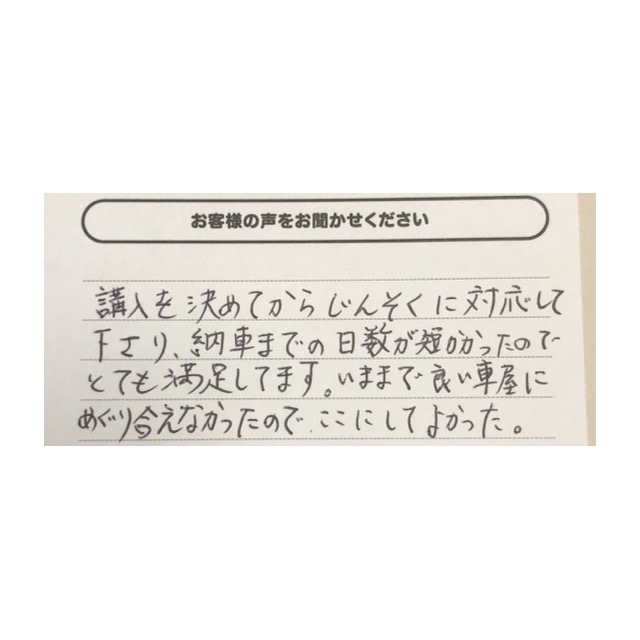 お客様の声をお聞かせください
講入を決めてからじんそくに対応して
下さり、納車までの日数が短かかったので
とても満足してます。いままで良い車屋に
めぐり合えなかったので、ここにしてよかった。